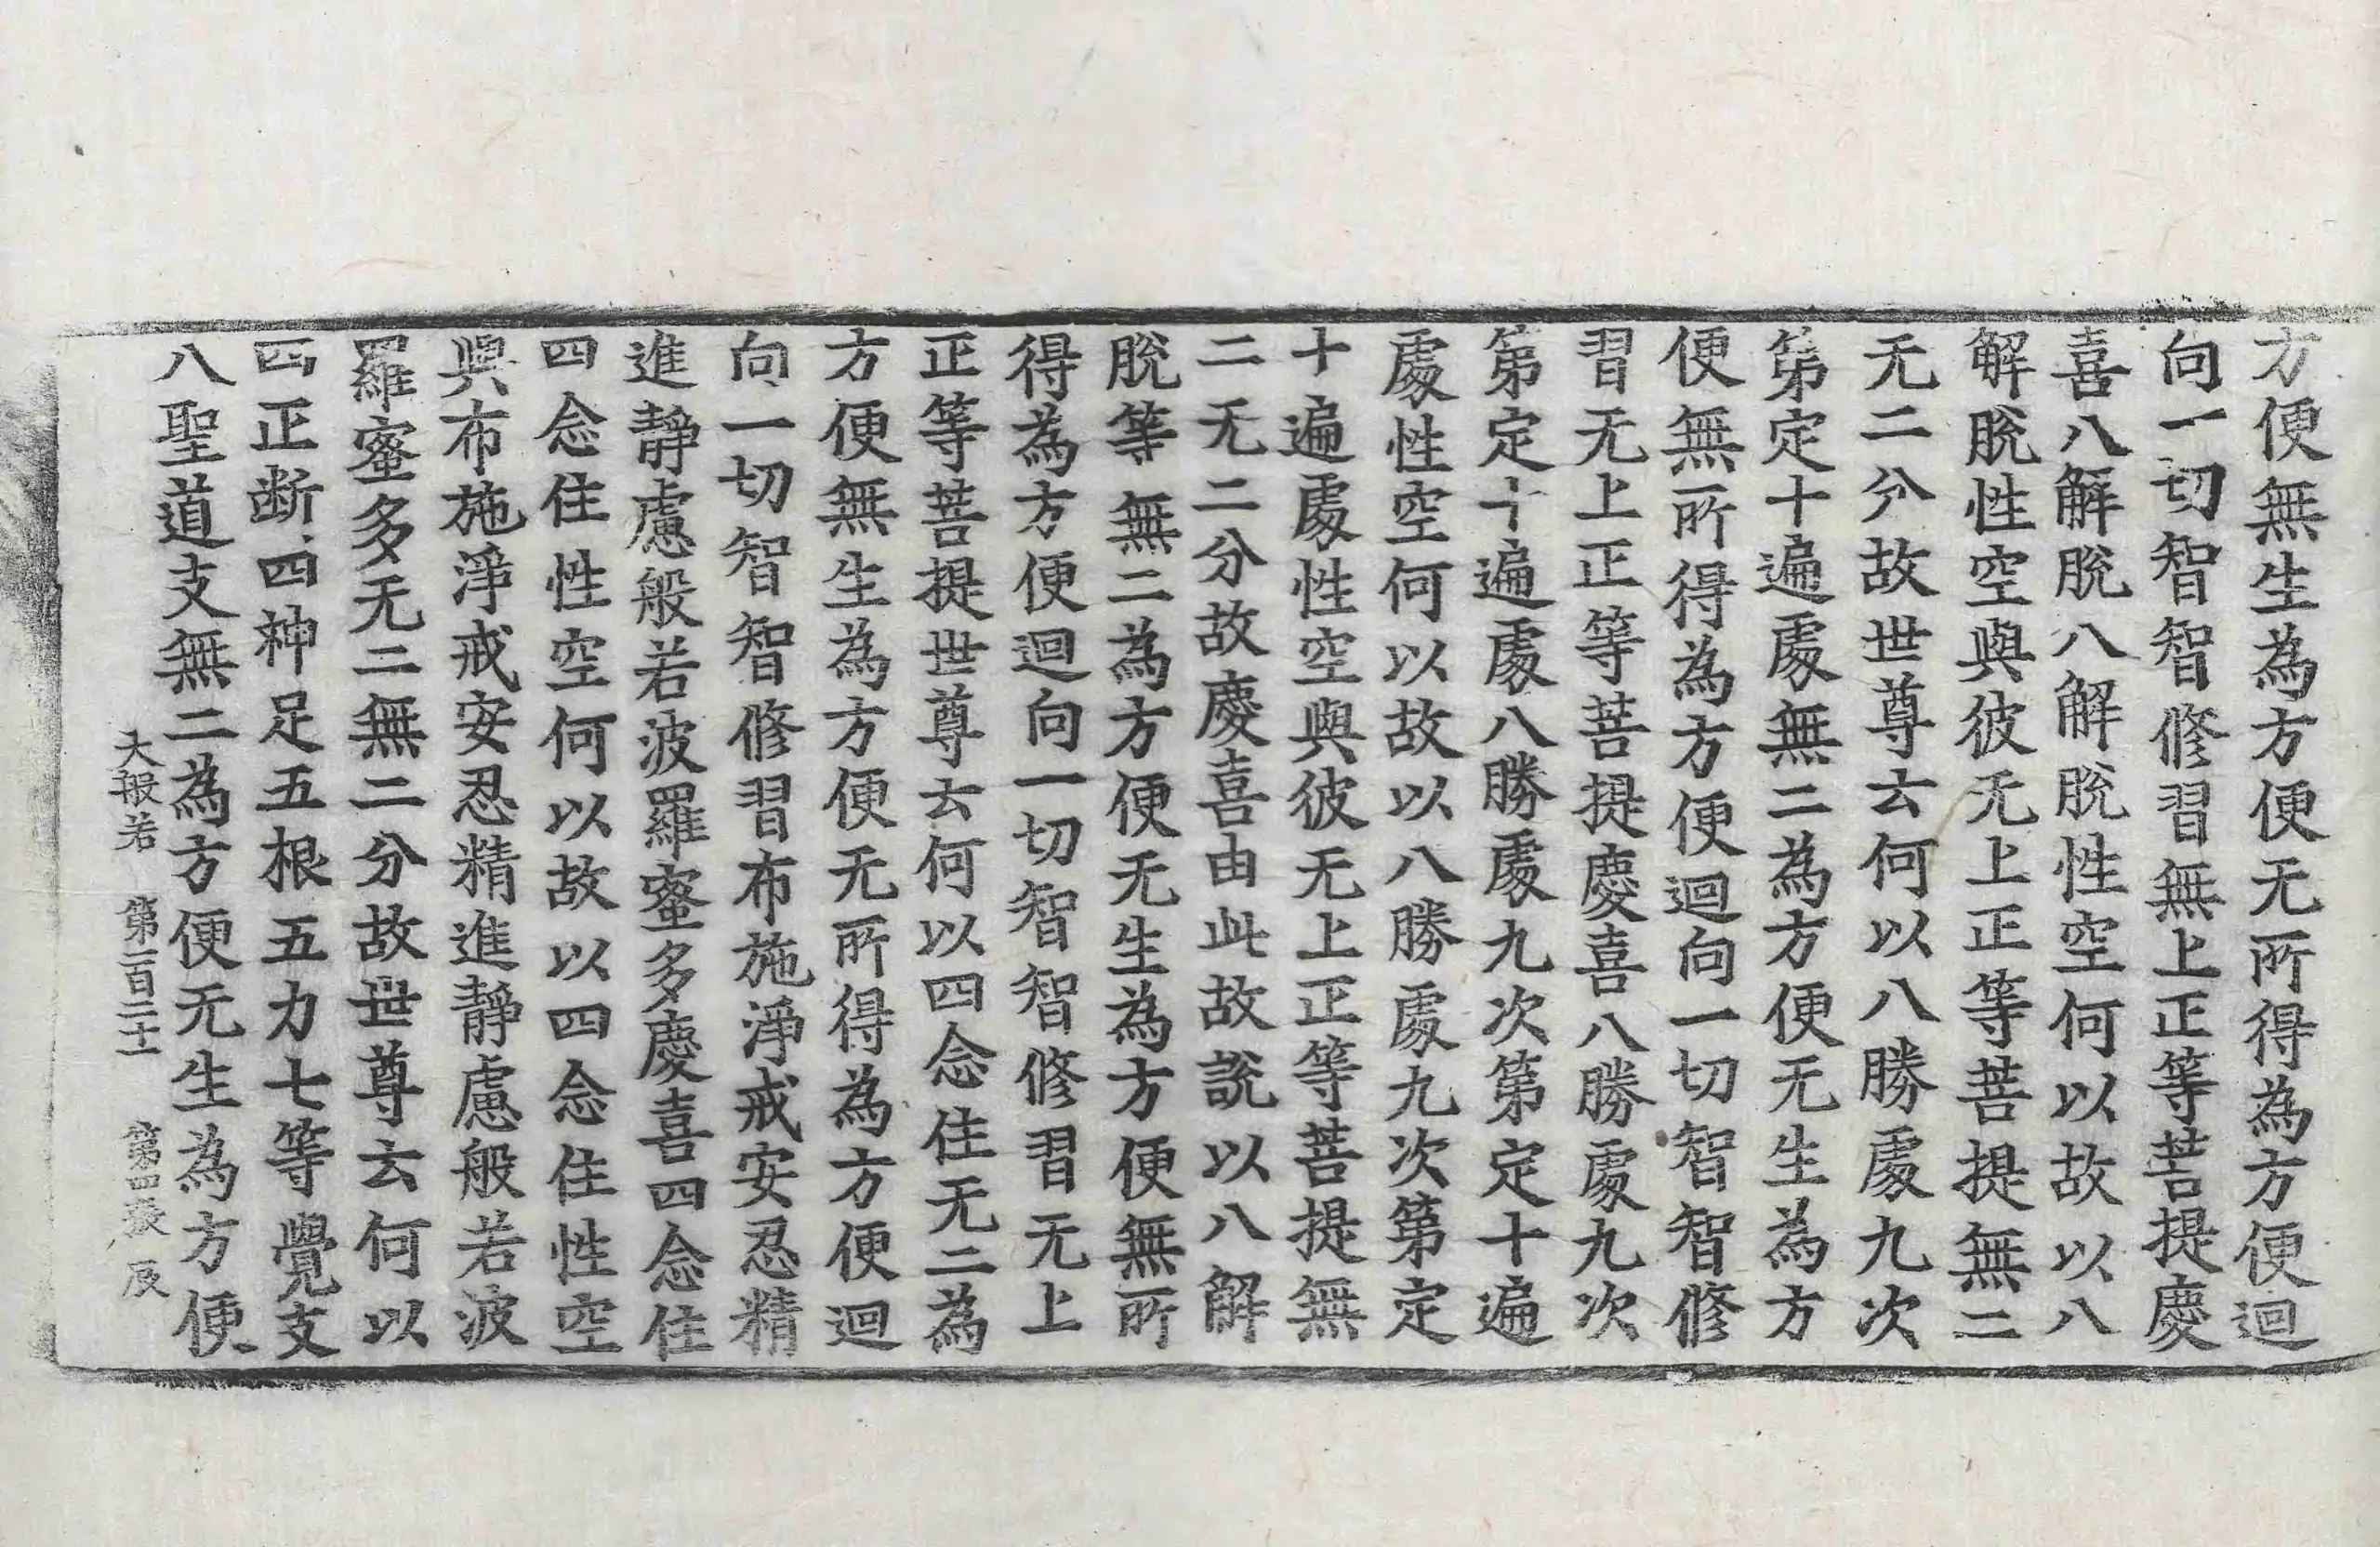 方便無生為方便无所得為方便迴
向一切智智修習無上正等菩提慶
喜八解脫八解脫性空何以故以八
解脫性空與彼无上正等菩提無二
无二分故世尊云何以八勝處九次
第定十遍處無二為方便无生為方
便無所得為方便迴向一切智智修
習无上正等菩提慶喜八勝處九次
第定十遍處八勝處九次第定十遍
處性空何以故以八勝處九次第定
十遍處性空與彼无上正等菩提無
二无二分故慶喜由此故說以八解
脫等無二為方便无生為方便無所
得為方便迴向一切智智修習无上
正等菩提世尊云何以四念住无二為
方便無生為方便无所得為方便迴
向一切智智修習布施淨戒安忍精
進靜慮般若波羅蜜多慶喜四念住
四念住性空何以故以四念住性空
與布施淨戒安忍精進靜慮般若波
羅蜜多无二無二分故世尊云何以
四正斷四神足五根五力七等覺支
八聖道支無二為方便无生為方便
大般若 第一百二十一 第四張 辰